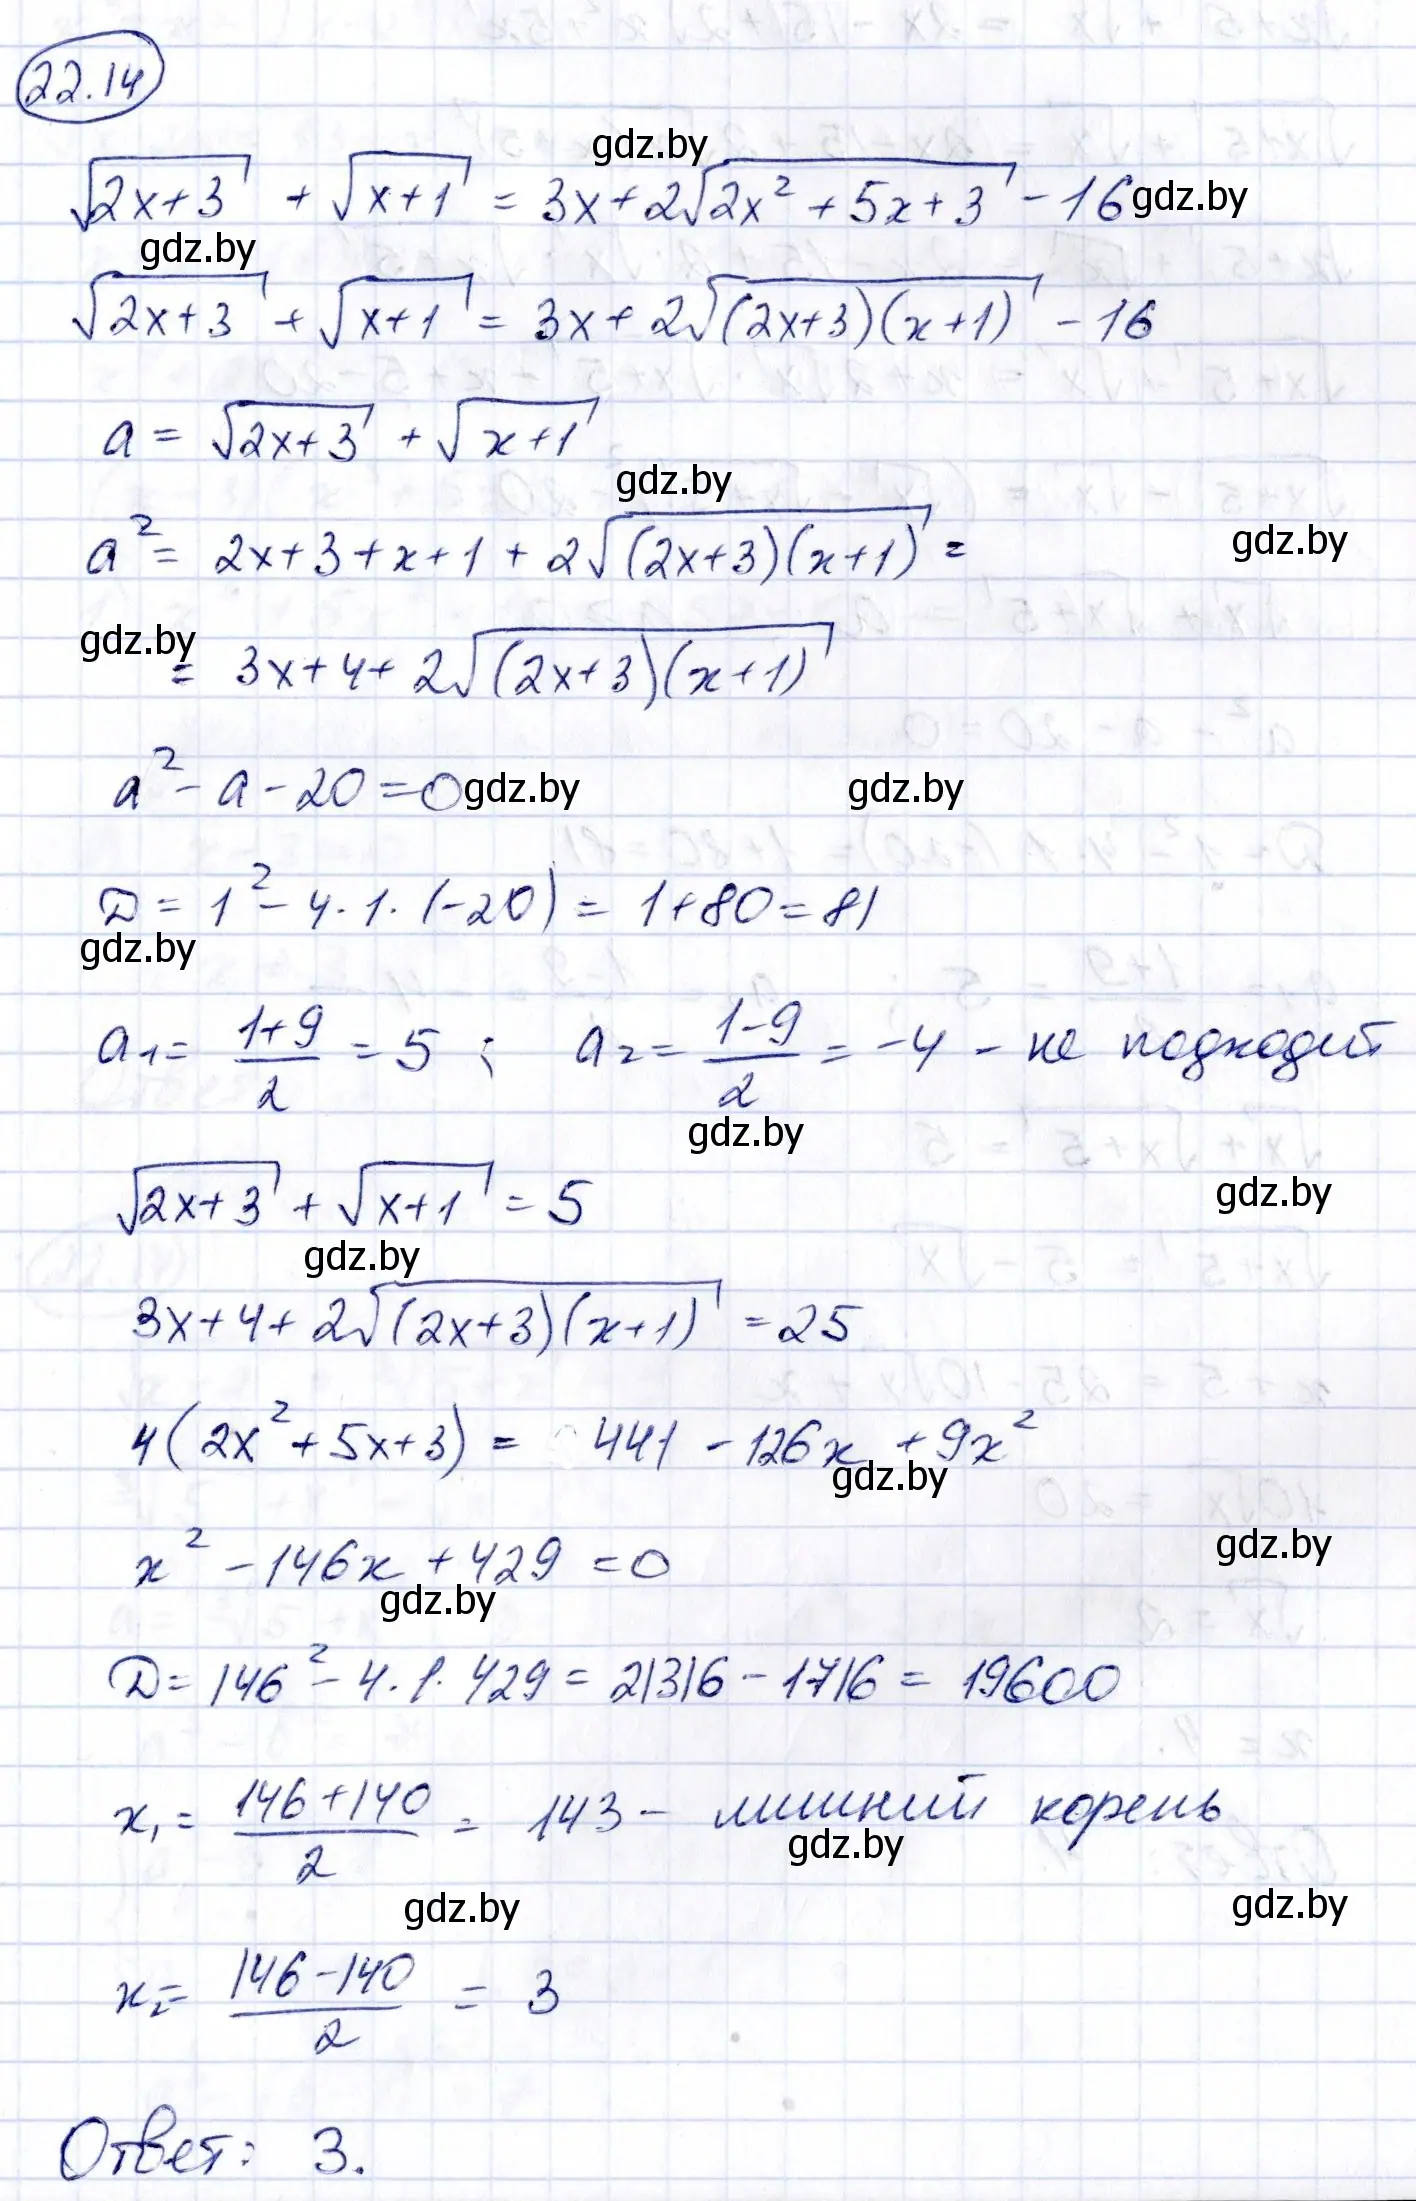 22.14
gdz.by
√(2x+3) + √(x+1) = 3x+2√(2x² + 5x+3) - 16 gdz.by
gdz.by
√(2x+3) + √(x+1) = 3x+2√((2x+3)(x+1)) - 16
a = √(2x+3) + √(x+1)
gdz.by
a² = 2x+3+x+1+2√((2x+3)(x+1)) = gdz.by
gdz.by
= 3x+4+2√((2x+3)(x+1))
a² - a - 20 = 0 gdz.by gdz.by
D = 1² - 4·1·(-20) = 1+80 = 81
gdz.by
a₁ = (1+9)/2 = 5 ; a₂ = (1-9)/2 = -4 - не подходит
gdz.by
√(2x+3) + √(x+1) = 5 gdz.by
gdz.by
3x+4+2√((2x+3)(x+1)) = 25
4(2x² + 5x+3) = 441 - 126x + 9x²
gdz.by
x² - 146x + 429 = 0 gdz.by
gdz.by
D = 146² - 4·1·429 = 21316 - 1716 = 19600
x₁ = (146+140)/2 = 143 - лишний корень
gdz.by
gdz.by gdz.by
x₂ = (146-140)/2 = 3
Ответ: 3.